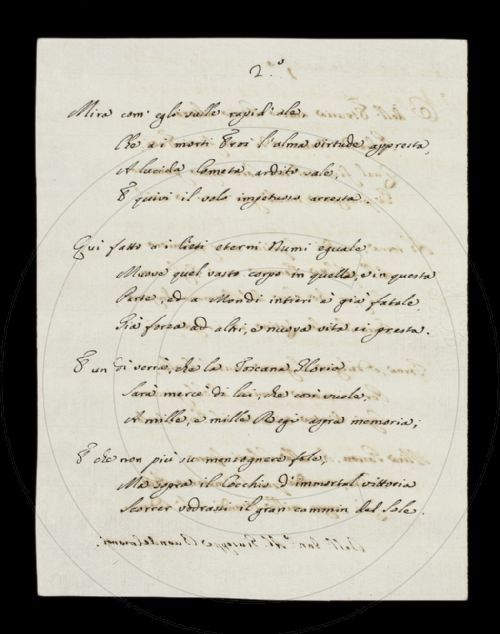 2.º
Mira com' egli sulle rapid' ale,
Che a i morti Eroi l'alma virtude appresta,
A lucida Cometa ardito sale,
E quivi il volo impetuoso arresta.
Qui fatto a i lieti eterni Numi eguale
Muove quel vasto corpo in quella, e in questa
Parte, ed a Mondi intieri è già fatale
Già forza ad altri, e nuova vita ei presta.
E un dì verrà, che la Toscana Gloria
Sarà mercè di lui, che così vuole,
A mille, e mille Regi aspra memoria;
E che non più su menzognere fole,
Ma sopra il Cocchio d'immortal vittoria
Scorrer vedrassi il gran cammin del Sole.